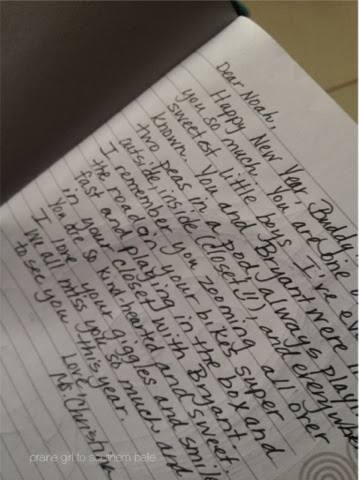 Dear Noah,
Happy New Year, Buddy!
you so much. You are one
sweetest little boys I've
known. You and Bryant were
two peas in a pod, always
outside, inside (closet!!) and
I remember you zooming all over
the road on your bikes super
fast and playing in the box and
in your closet with Bryant.
You are so kind-hearted and sweet.
I love your giggles and
We all miss you so much and
to see you this year.
Love,
Ms. Christina
prairie girl to southern belle